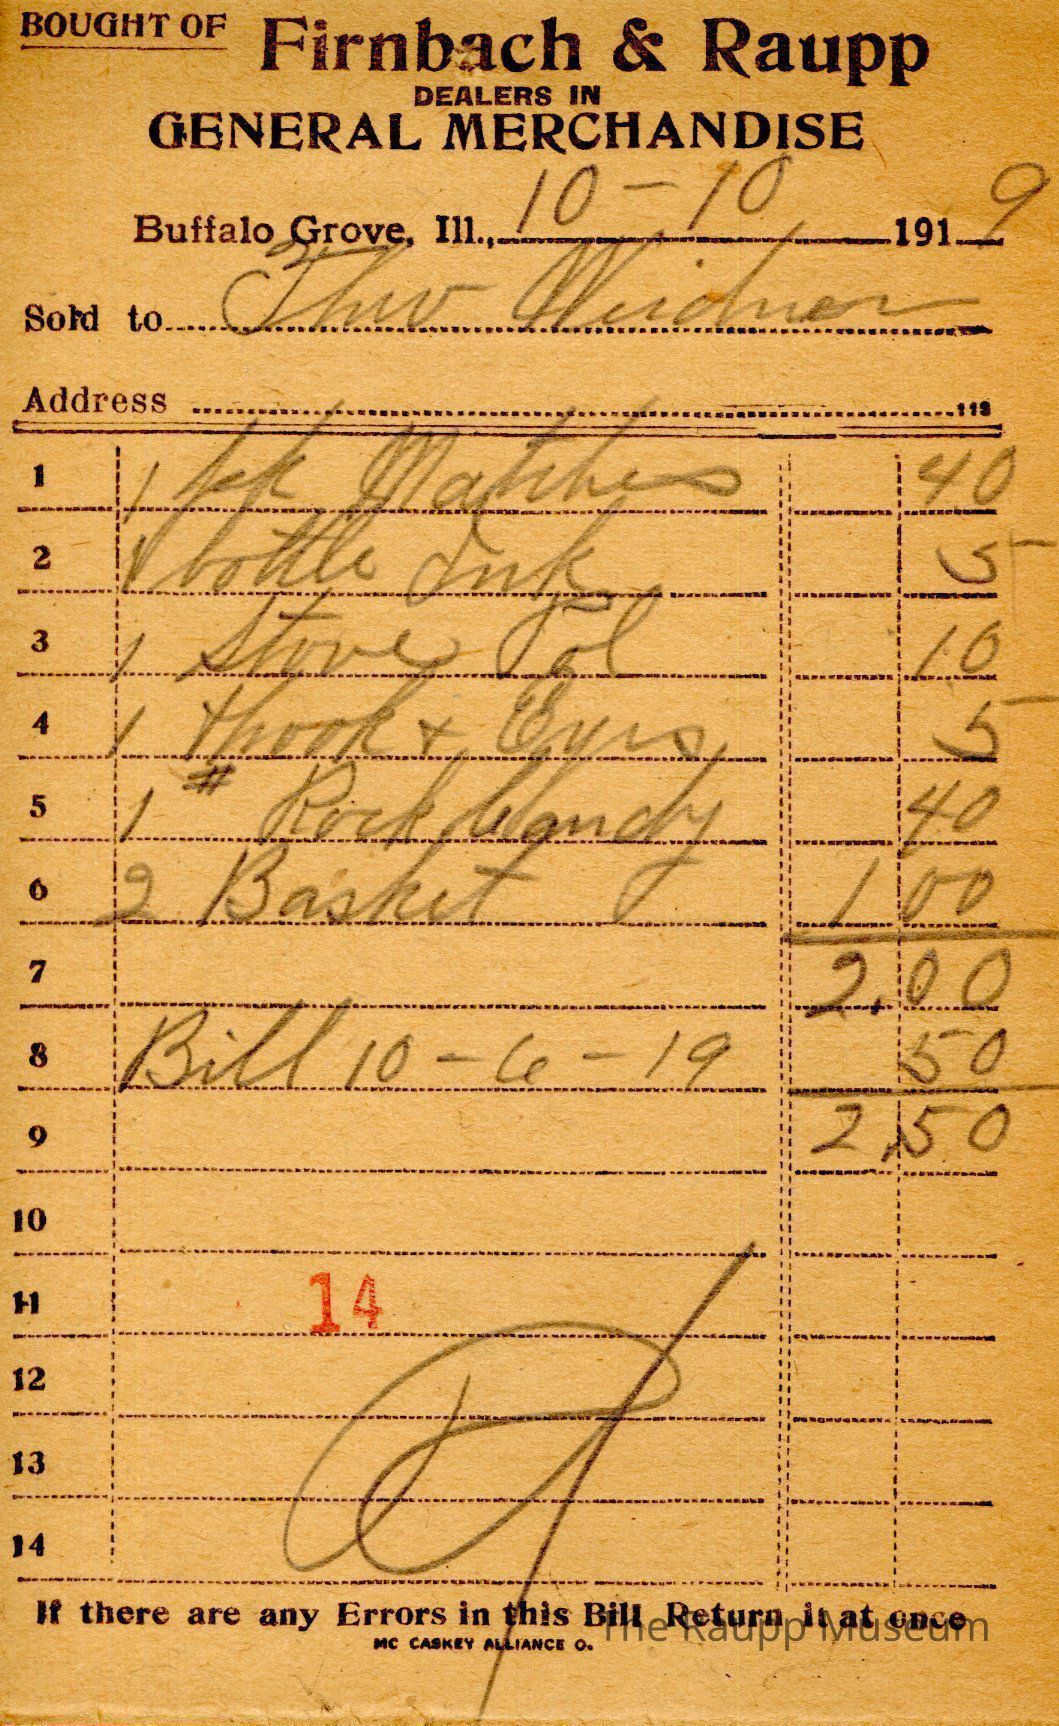 BOUGHT OF Firnbach & Raupp
DEALERS IN
GENERAL MERCHANDISE
Buffalo Grove, Ill., 10-10 1919
Sold to Theo Weidner
Address 113
1 1 pk Matches 40
2 1 bottle Ink 5
3 1 Stove Pol 10
4 1 Hook + Eyes 5
5 1 # Rock Candy 40
6 2 Basket 1 00
7 2.00
8 Bill 10-6-19 50
9 2.50
10
11 14
12
13
14
If there are any Errors in this Bill Return it at once
MC CASKEY ALLIANCE O.
The Raupp Museum